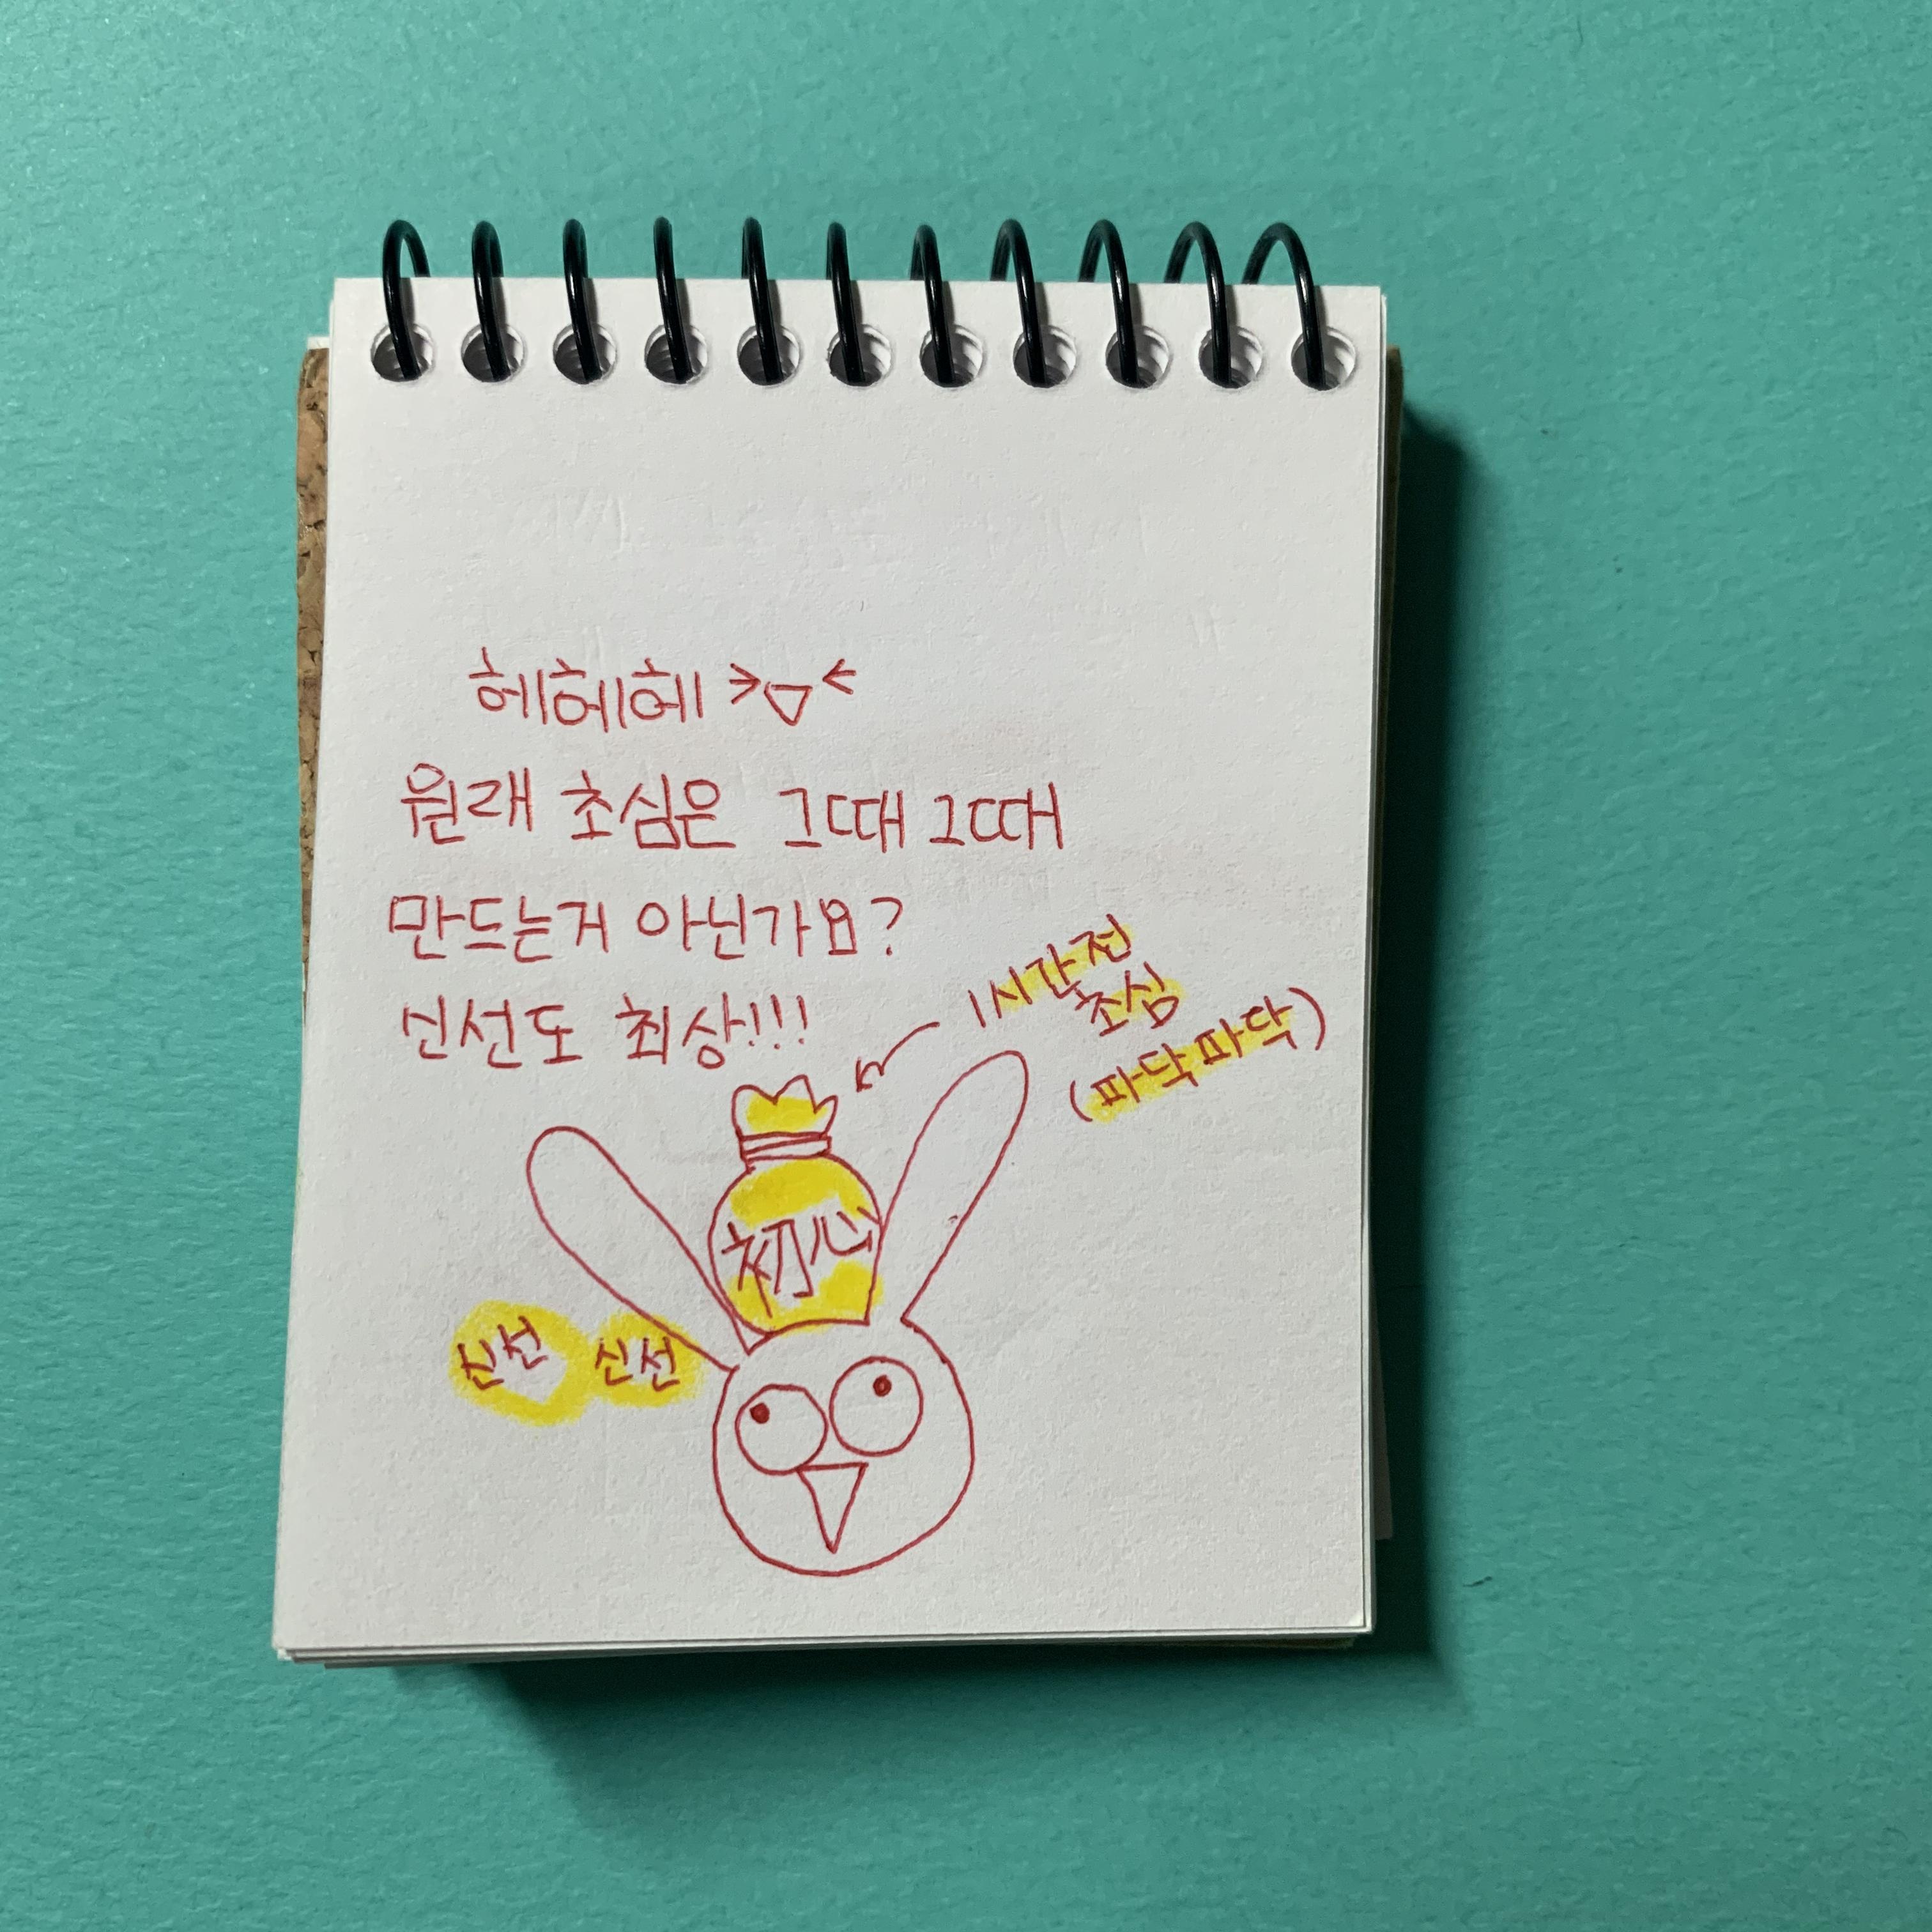 헤헤헤 >▽<
원래 초심은 그때그때
만드는거 아닌가요?
신선도 최상!!!
1시간전
초심
(파닥파닥)
初心
신선 신선